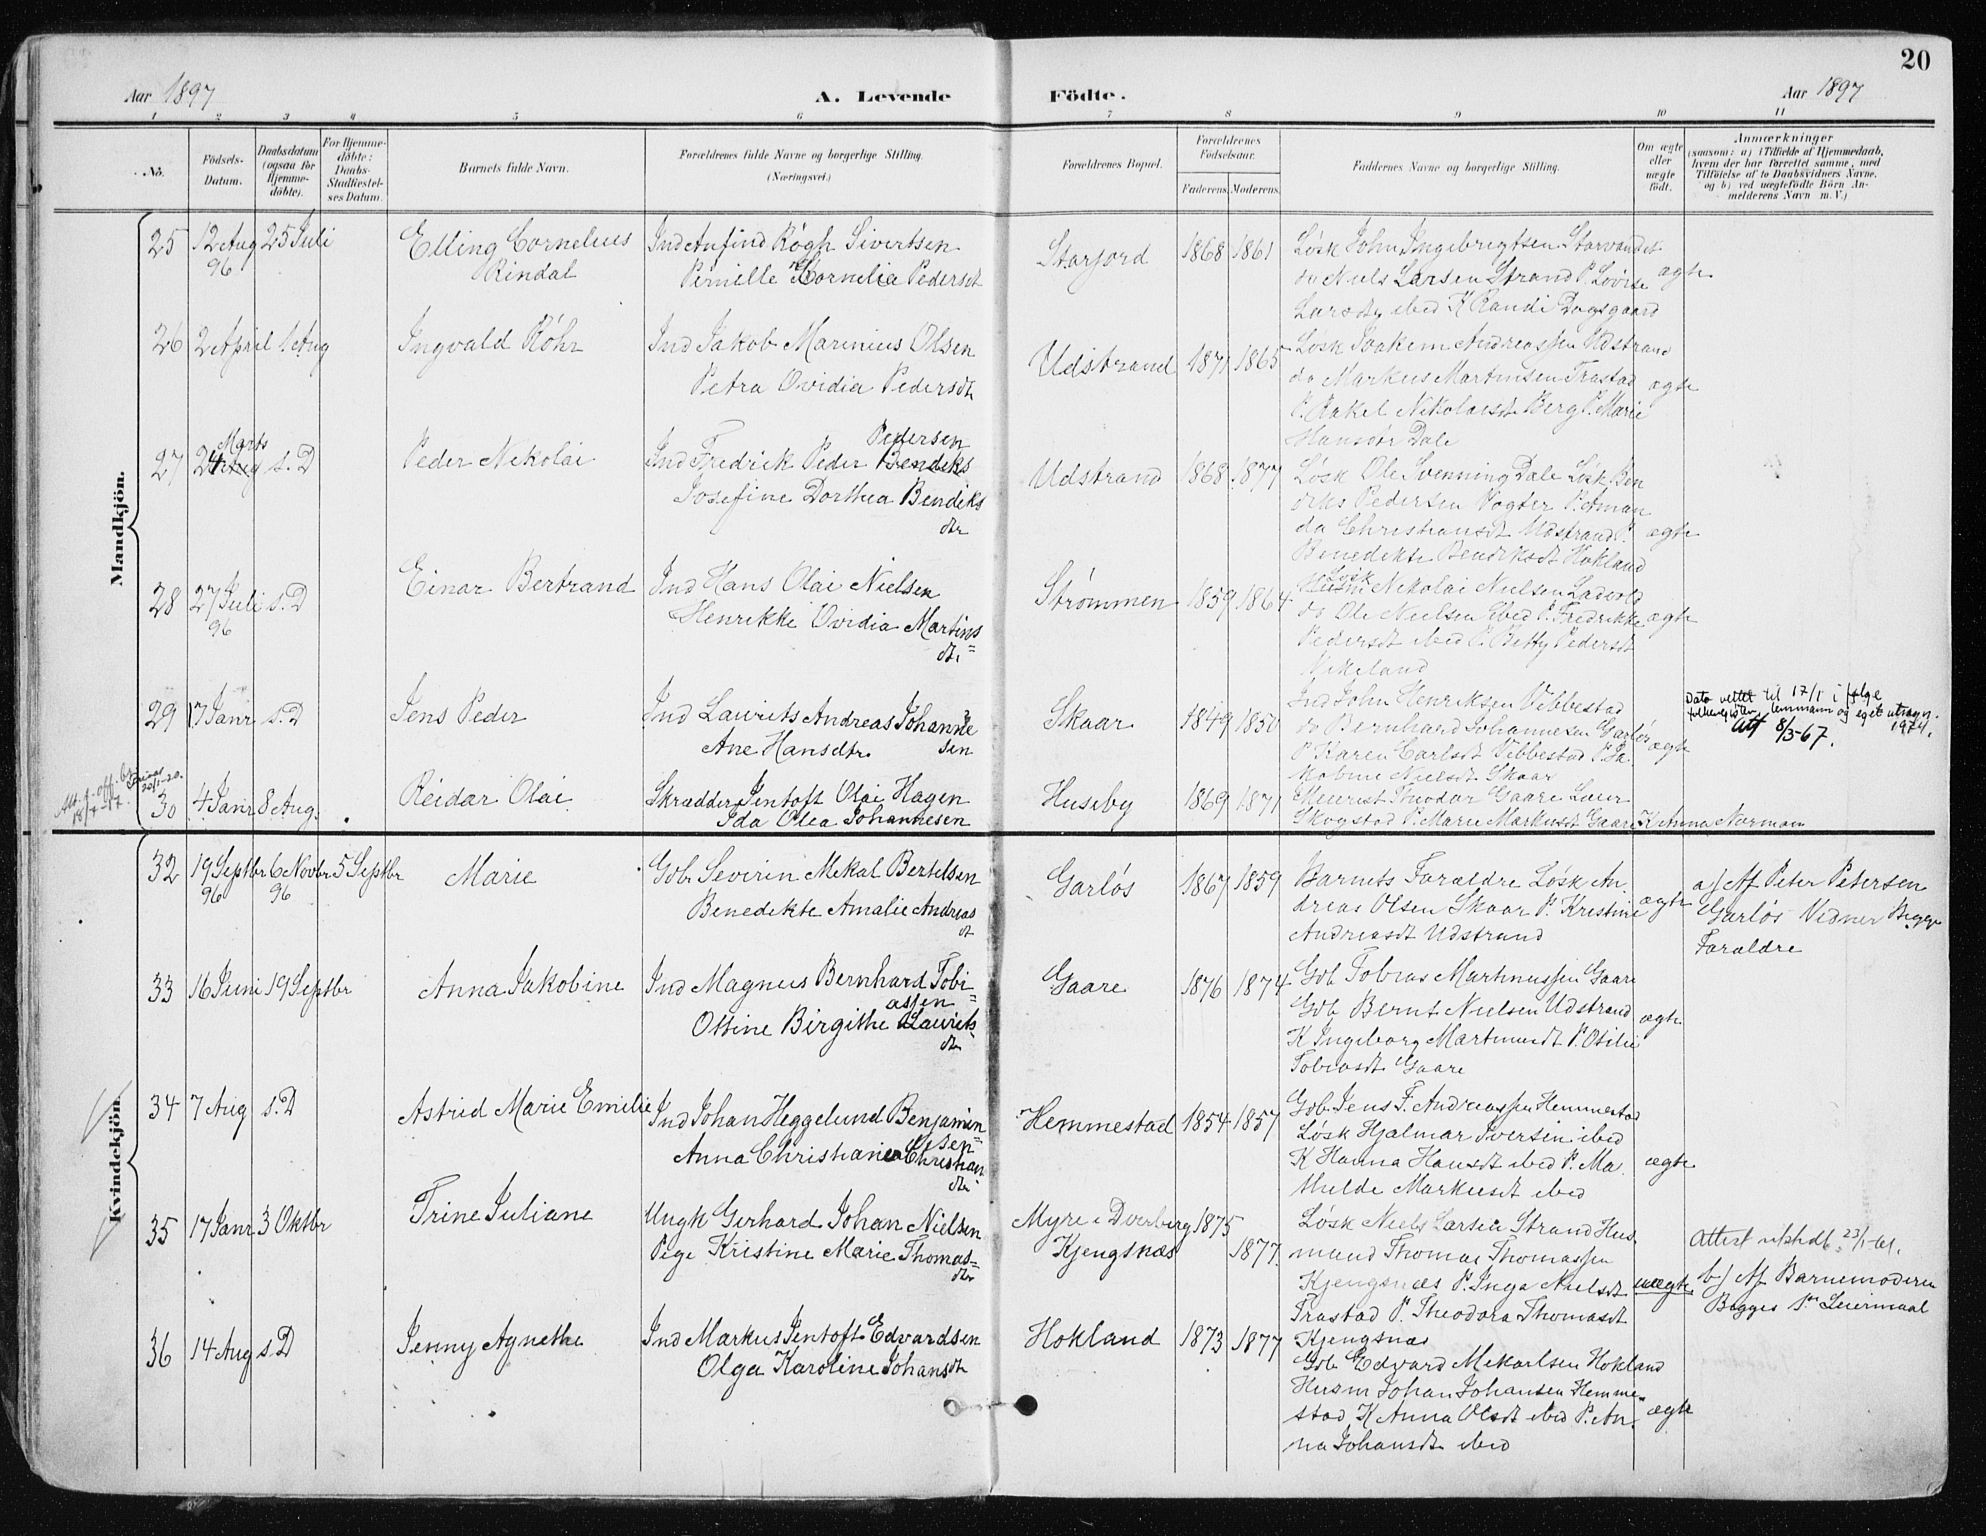 20
Aar 1897
A. Levende
Födte.
Aar 1897
1 2 3 4 5 6 7 8 9 10 11
No.
Födsels-
Datum.
Daabsdatum
(ogsaa for
Hjemme-
döbte).
For Hjemme-
döbte:
Daabs-
Stadfæstel-
ses Datum.
Barnets fulde Navn.
Forældrenes fulde Navne og borgerlige Stilling.
(Næringsvei.)
Forældrenes Bopæl.
Forældrenes
Födselsaar.
Faderens. Moderens.
Faddernes Navne og borgerlige Stilling.
Om ægte
eller
uægte
födt.
Anmærkninger
(saasom: a) i Tilfælde af Hjemmedaab,
hvem der har forrettet samme, med
Tilföielse af to Daabsvidners Navne,
og b) ved uægtefödte Börn An-
melderens Navn m. V.)
Mandkjön.
25 12 Aug 96 25 Juli
Elling Cornelius
Rindal
Ind Anfind Røgh Sivertsen
Pernille Kornelia Pedersdt
Storjord 1868 1861
Løsk John Ingebrigtsen Storvandet
do Niels Larsen Strand P. Lovise
Larsdtr ibed K Randi Dogsgaard
ægte
26 2 April 1 Aug
Ingvald Röhr
Ind Jakob Marinius Olsen
Petra Ovidia Pedersdt
Udstrand 1871 1865
Løsk Joakem Andreassen Udstrand
do Markus Martinsen Trastad
P. Rakel Nikolaisdt Berg P. Marie
Hansdtr Dale
ægte
27 24 Marts s. D
Peder Nikolai
Ind Fredrik Peder Pedersen
Josefine Dorthea Bendiks
dtr
Udstrand 1868 1877
Løsk Ole Svenning Dale Løsk Ben
diks Pedersen Vogter P. Aman
da Christiansdt Udstrand P.
Benedikte Bendiksdt Hokland
ægte
28 27 Juli 96 s. D
Einar Bertrand
Ind Hans Olai Nielsen
Henrikke Ovidia Martins
dt.
Strømmen 1859 1864
Løsk Nikolai Nielsen Ladvold
do Ole Nielsen ibed P. Fredrikke
Pedersdt ibed P. Betty Pedersdt
Vikeland
ægte
29 17 Janr s. D
Jens Peder
Ind Laurits Andreas Johanne
sen
Ane Hansdtr.
Skaar 1849 1850
Ind John Henriksen Vebbestad
do Bernhard Johannesen Garløs
P. Karen Carlsdt Vebbestad P. Ja
kobine Nielsdt Skaar
ægte
Dato rettet til 17/1 i følge
folkeregister, lensmann og eget utsagn.
1974.
Att 8/3-67.
30 4 Janr 8 Aug.
Reidar Olai
Skrædder Jentoft Olai Hagen
Ida Olea Johannesen
Huseby 1869 1871
Skogstad P. Marie Markusdt Gaare K Anna Norman
Kvindekjön.
32 19 Septbr 96 6 Novbr 96 5 Septbr
Marie
Gob Severin Mekal Bertelsen
Benedikte Amalie Andreas
dt
Garløs 1867 1859
Barnets Forældre Løsk An
dreas Olsen Skaar P. Kristine
Andreasdt Udstrand
ægte
a) Af Peter Petersen
Garløs Vidner Begge
Forældre
33 16 Juni 19 Septbr
Anna Jakobine
Ind Magnus Bernhard Tobi
assen
Ottine Birgithe Laurits
dtr
Gaare 1876 1874
Gob Tobias Martinussen Gaare
Gob Bernt Nielsen Udstrand
K Ingeborg Martinusdt P. Otilie
Tobiasdt Gaare
ægte
34 7 Aug s. D
Astrid Marie Emilie
Ind Johan Heggelund Benjamin
sen
Anna Christiane Christian
dtr
Hemmestad 1854 1857
Gob. Jens F. Andreassen Hemmestad
Løsk Hjalmar Iversen ibed
K Hanna Hansdt ibed P. Ma
thilde Markusdt ibed
ægte
35 17 Janr 3 Oktbr
Trine Juliane
Ungk Gerhard Johan Nielsen
Pige Kristine Marie Thomas
dtr
Myre i Dverberg 1875
Kjengsnæs 1877
Løsk Niels Larsen Strand Hus
mand Thomas Thomassen
Kjengsnæs P. Inga Nielsdt
Trastad P. Theodora Thomasdt
Kjengsnæs
uægte
Attest 23/1-61.
b) Af Barnemoderen
Begges 1ste Leiermaal
36 14 Aug s. D
Jenny Agnethe
Ind Markus Jentoft Edvardsen
Olga Karoline Johansdt
Hokland 1873 1877
Gob Edvard Mekalsen Hokland
Husm Johan Johansen Hemme
stad K Anna Olsdt ibed P. An
na Johansdt ibed
ægte